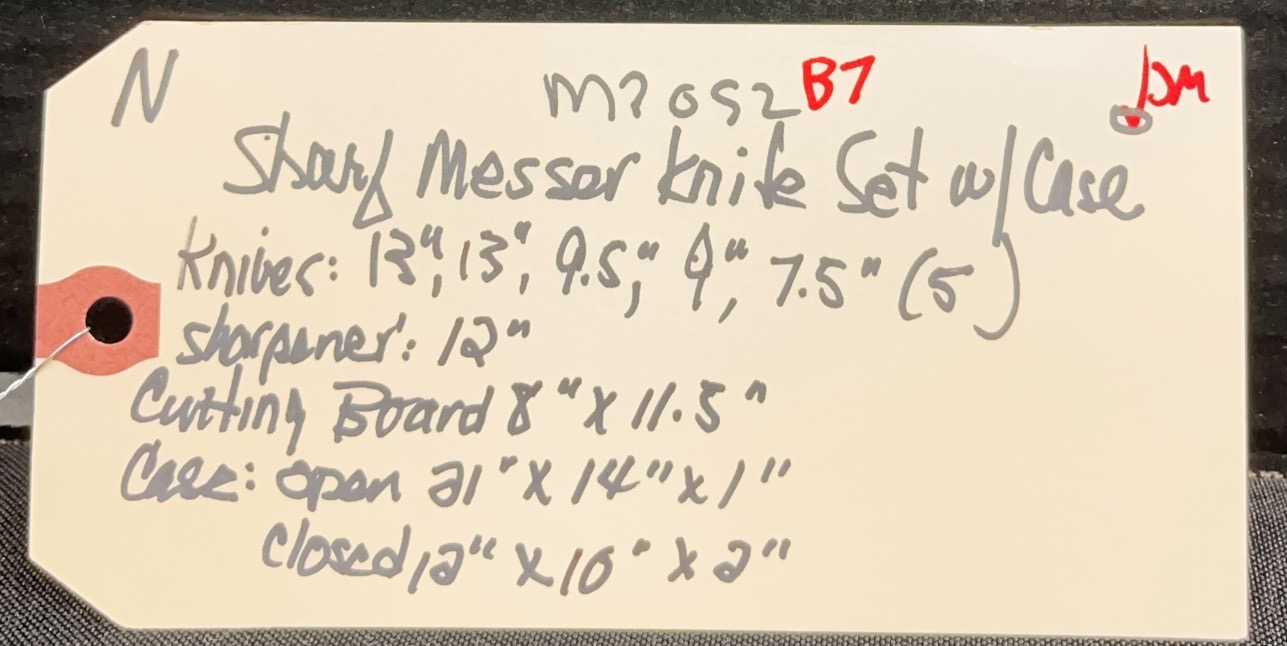 N M7052 B7
Sharf Messer Knife Set w/ Case
Knives: 13", 13", 9.5", 9", 7.5" (5)
sharpener: 12"
Cutting Board 8" X 11.5"
Case: open 21" X 14" X 1"
Closed 12" X 10" X 2"